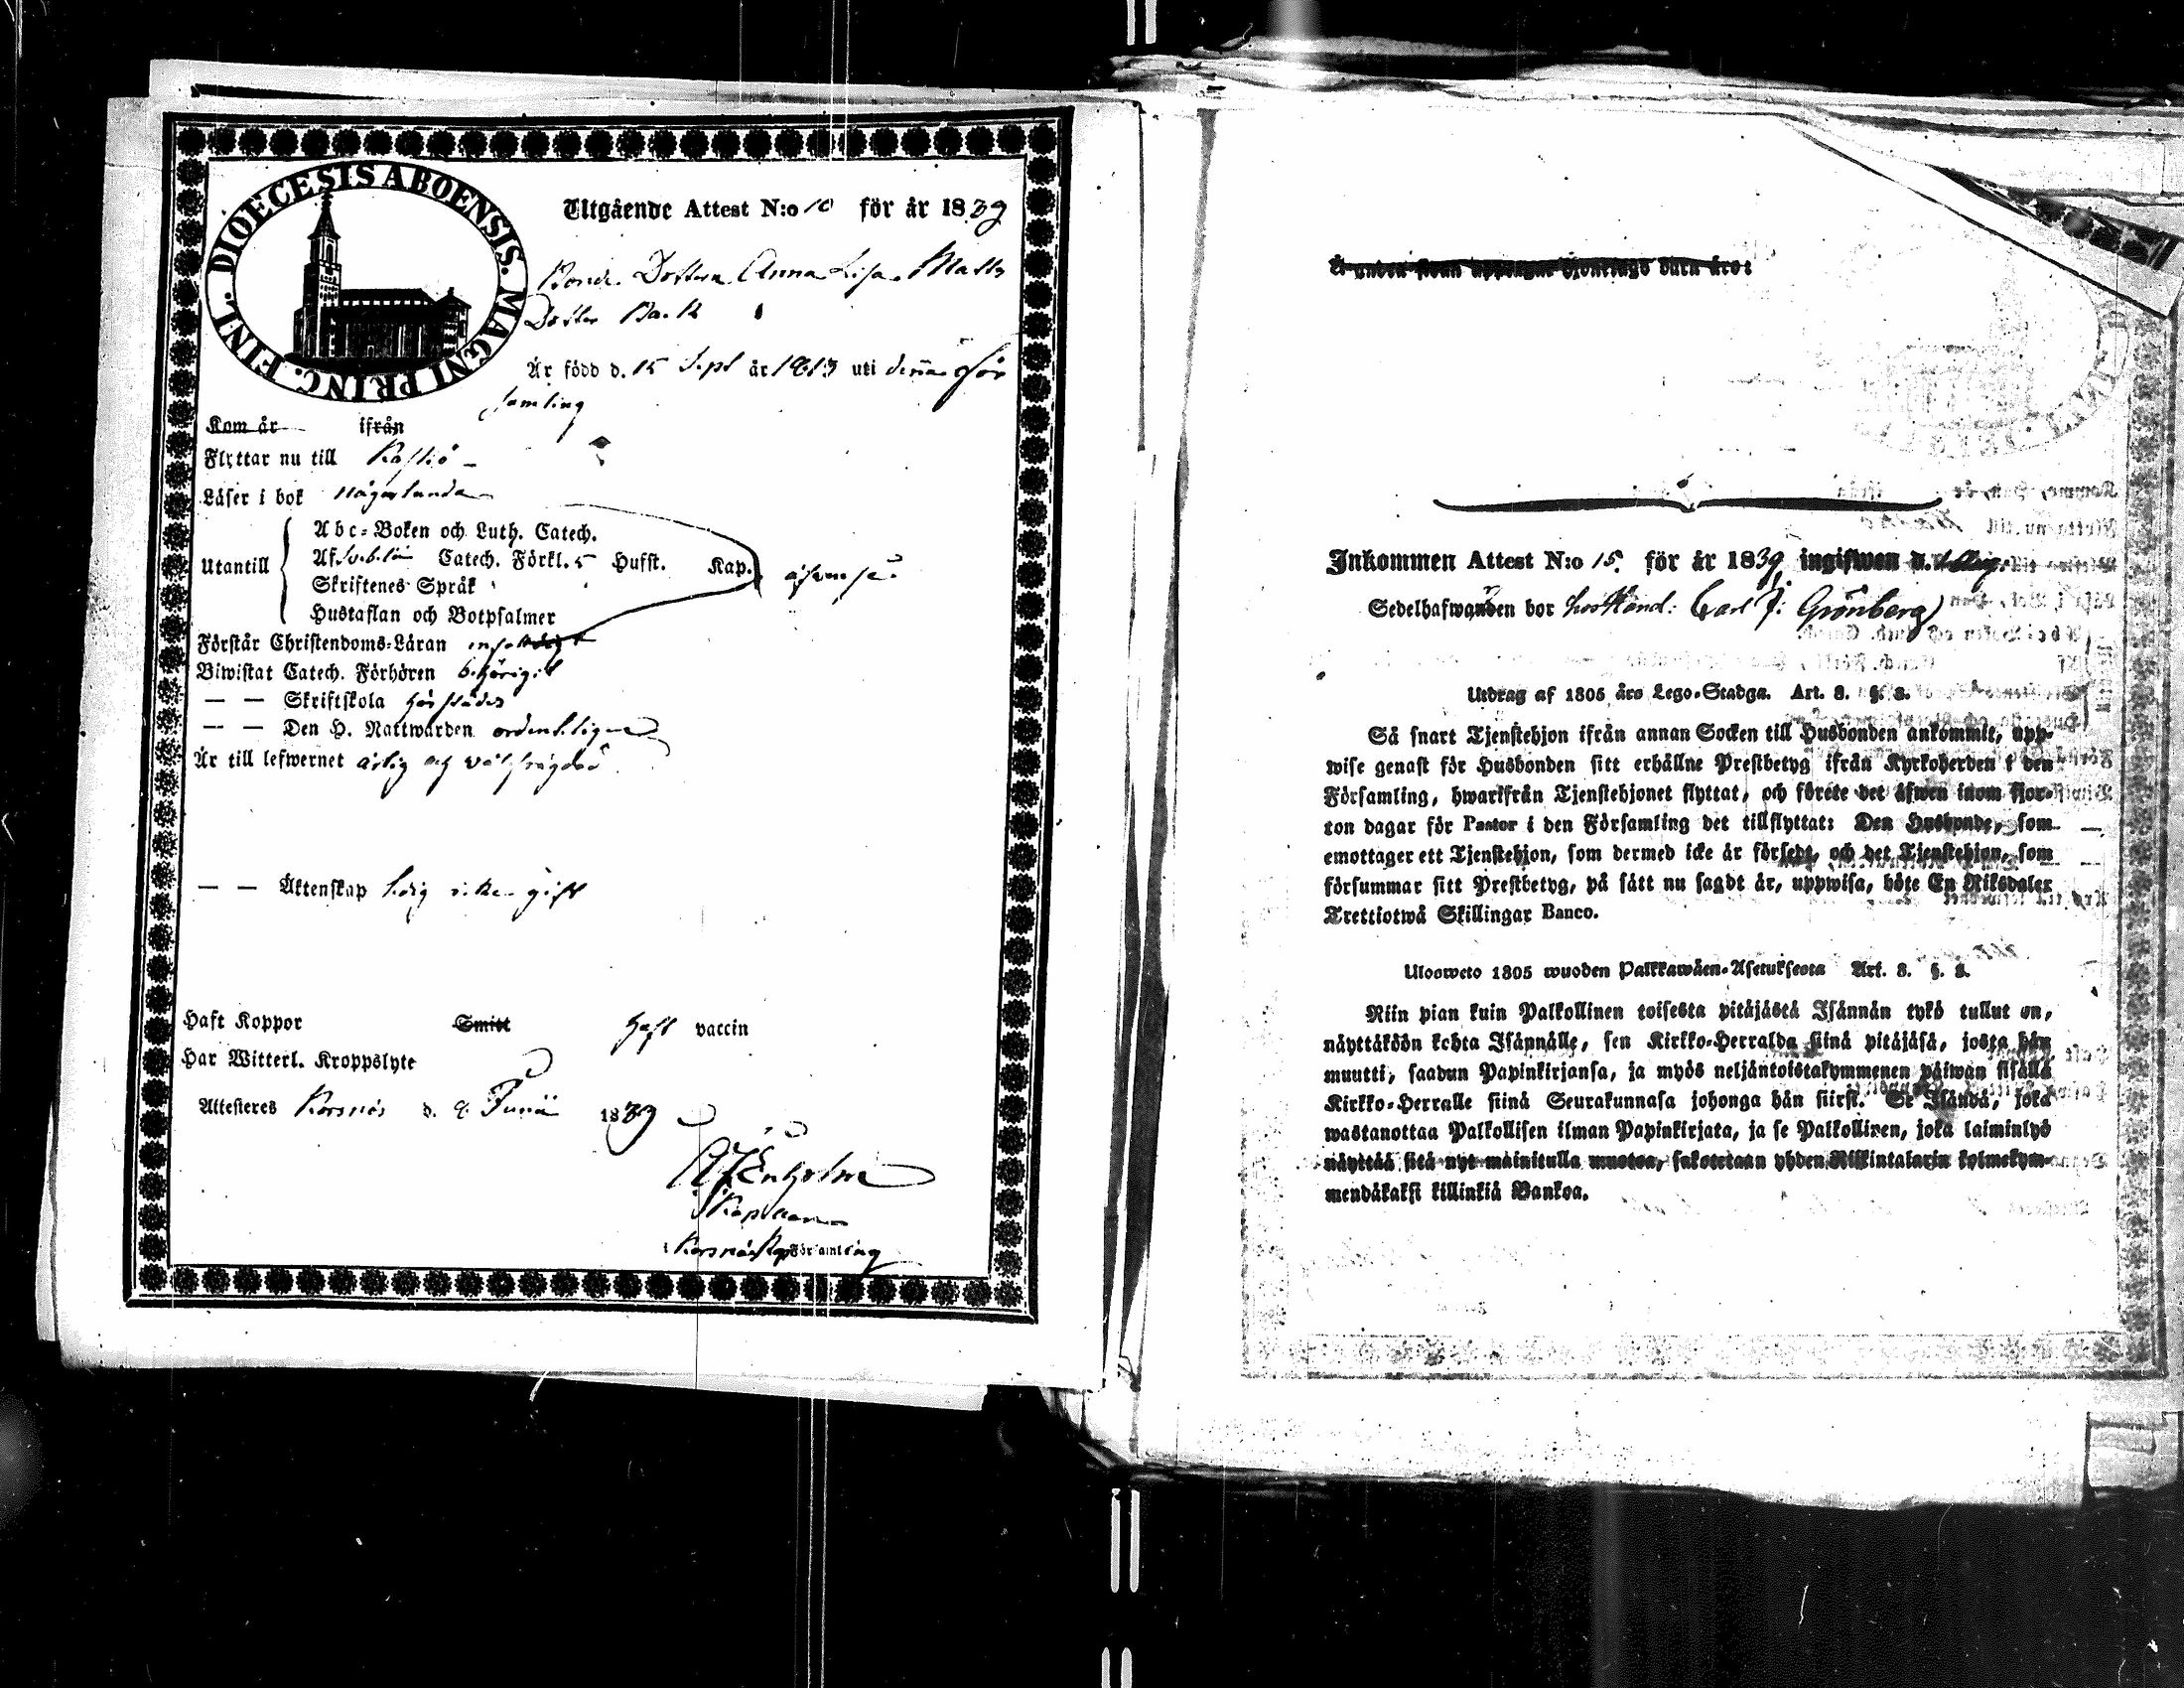 DIOECESIS ABOENSIS. MAGNI PRINC. FINL.
Utgående Attest N:o 10 för år 1839
Bonde Dottern Anna Lisa Matts
Dotter Back
Är född d. 15 Sept år 1813 uti denna För
samling
Kom år ifrån
Flyttar nu till Kaskö
Läser i bok någorlunda
Utantill
Abc-Boken och Luth. Catech.
Af Svebelii Catech. Förkl. 5 Hufst. Kap.
Skriftenes Språk
Hustaflan och Botpsalmer
äfvenså
Förstår Christendoms-Läran
Biwistat Catech. Förhören behörigt
— — Skriftskola härstädes
— — Den H. Nattwarden ordentligen
Är till lefwernet ärlig och välfrägdad
— — Äktenskap ledig icke gift
Haft Koppor Smitt haft vaccin
Har Witterl. Kroppslyte
Attesteras Korsnäs d. Junii 1839
Enholm
Kaplan
i Korsnäs Församling
Inkommen Attest N:o 15. för år 1839 ingifwen d.
Sedelhafwanden bor hos Hand: Carl J: Grönberg
Utdrag af 1805 års Lego-Stadga. Art. 8. §. 8.
Så snart Tjenstehjon ifrån annan Socken till Husbonden ankommit, upp-
wise genast för Husbonden sitt erhållne Prestbetyg ifrån Kyrkoherden i den
Församling, hwarifrån Tjenstehjonet flyttat, och förete det äfwen inom fjor-
ton dagar för Pastor i den Församling det tillflyttat: Den Husbonde, som
emottager ett Tjenstehjon, som dermed icke är försedt, och det Tjenstehjon, som
försummar sitt Prestbetyg, på sätt nu sagdt är, uppwisa, böte En Riksdaler
Trettiotwå Skillingar Banco.
Uloosweto 1805 wuoden Palkkawäen-Asetuksesta Art. 8. §. 8.
Niin pian kuin Palkollinen toisesta pitäjästä Isännän tykö tullut on,
näyttäköön kohta Isännälle, sen Kirkko-Herralda siinä pitäjäsä, josta hän
muutti, saadun Papinkirjansa, ja myös neljäntoistakymmenen päiwän sisällä
Kirkko-Herralle siinä Seurakunnasa johonga hän siirsi. Se Isändä, joka
wastanottaa Palkollisen ilman Papinkirjata, ja se Palkollinen, joka laiminlyö
näyttää sitä nyt mainitulla muotoa, sakotetaan yhden Riksintalarin kolmekym-
mendäkaksi killinkiä Bankoa.